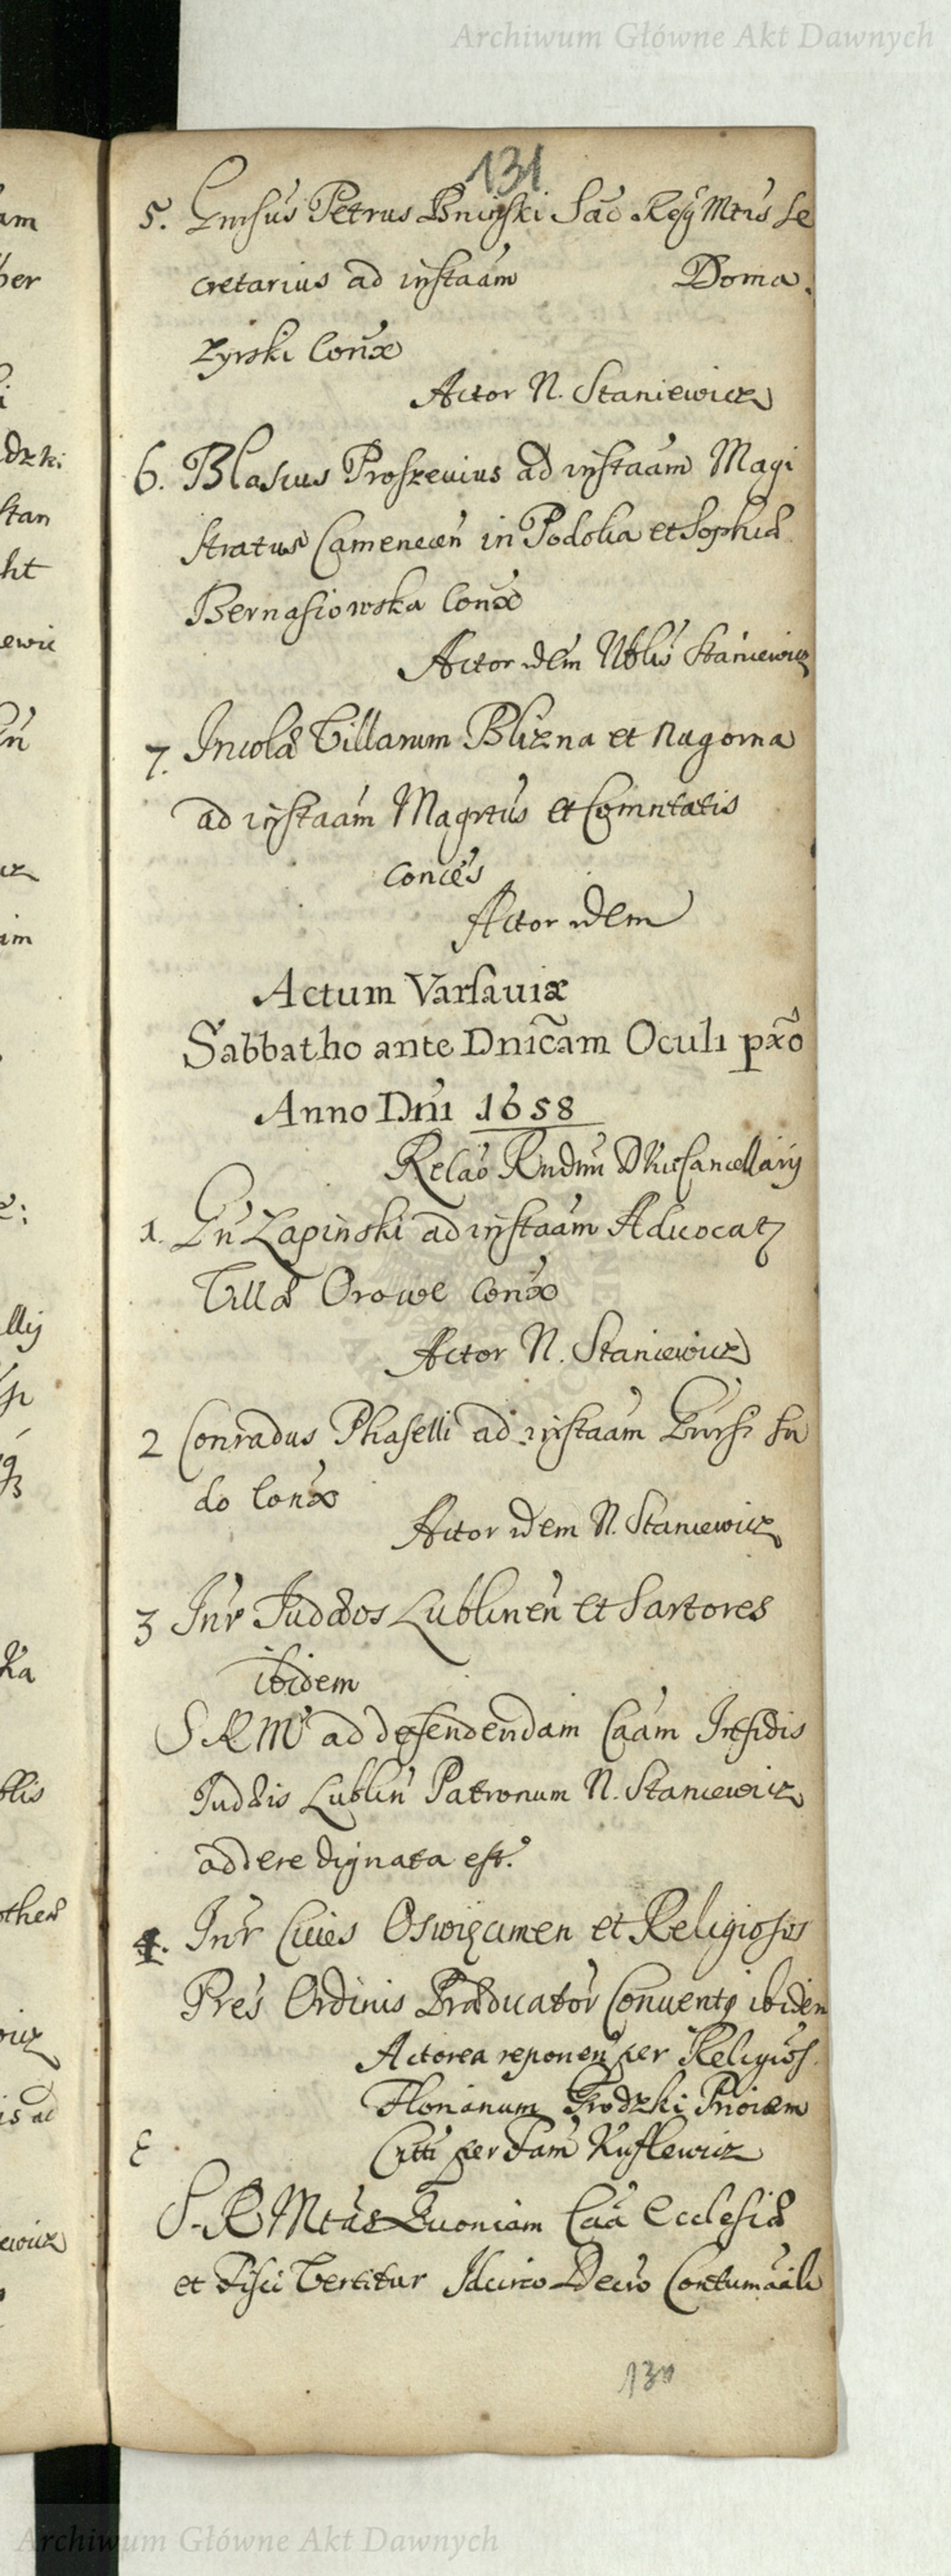 Archiwum Główne Akt Dawnych
131
5. Gnrsus Petrus Bninski Sac Reg Mtis Se
cretarius ad instaam Doma.
zyrski Conx
Actor N. Staniewicz
6. Blasius Proszevius ad instaam Magi
stratus Camenecen in Podolia et Sophia
Bernasiowska Conx
Actor idem Nblis Staniewicz
7. Incolæ Villarum Blizna et Nagorna
ad instaam Magrtus et Comntatis
Conces
Actor idem
Actum Varsauiæ
Sabbatho ante Dnicam Oculi pxo
Anno Dni 1658
Relao Rndmi D Vicecancellarij
1. Gn Lapinski ad instaam Aduocati
Villæ Orowe Conx
Actor N. Staniewicz
2 Conradus Phaselli ad instaam
do Conx
Actor idem N. Staniewicz
3 Inr Judæos Lublinen et Sartores
ibidem
S R M ad defendendam Caam Infidis
Judæis Lublin Patronum N. Staniewicz
addere dignata est.
4. Inr Ciues Oswięcimen et Religiosos
Pres Ordinis Prædicator Conuentq ibidem
Actorea reponen per Religios.
Florianum Grodzki Priorem
Citti per Fam Kuflewicz
S. R Mtas Quoniam Caa Ecclesiæ
et Fisci Vertitur Idcirco Decro Contumacili
130
Archiwum Główne Akt Dawnych